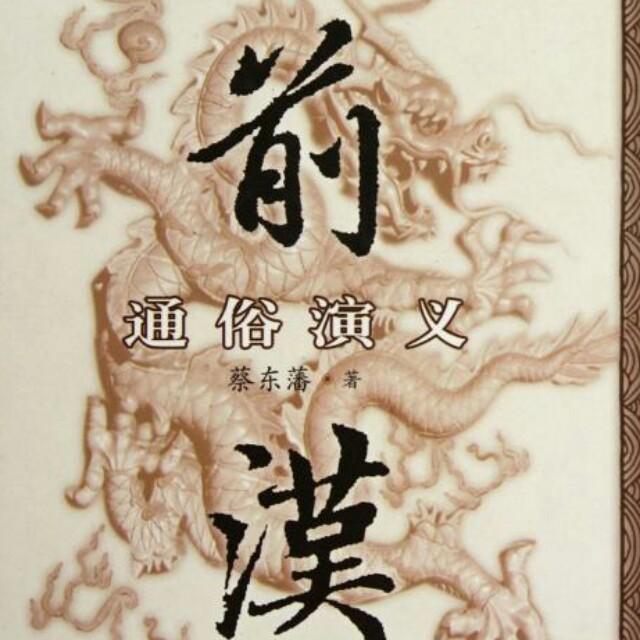 前
通俗演义
蔡东藩·著
漢